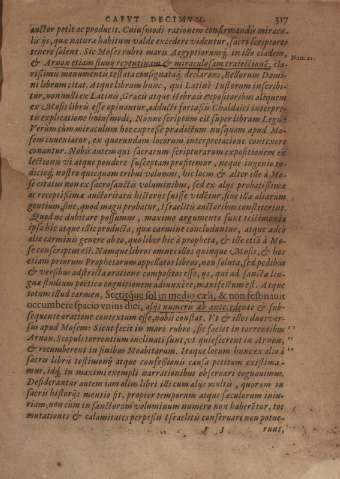 CAPVT DECIMVM. 317
auctor petit ac producit. Cuiusmodi rationem confirmandis miracu-
lis ijs, quæ naturæ habitum valde excedere videntur, sacro scriptores
tenere solent. Sic Moses rubro maris Aegyptiorumq́ in illo cladem,
Num. 21.
& Arnon etiam sluuij repentinam & miraculosam traiectionem, cla-
rissimis monumentis testata consignataq́, declarans, Bellorum Domi-
ni librum citat. Atque librum hunc, qui Latinè Iustorum inscribi-
tur, nonnulli ex Latinis, Græcis atque Hebræis expositoribus aliquem
ex Mosis libris esse opinantur, adducti fortassis Chaldaici interpre-
tis explicatione huiusmodi, Nonne scriptum est super librum Legis?
Verùm cum miraculum hoc expressè prædictum nusquam apud Mo-
sem inueniatur, ex quorundam locorum interpretatione contexere
conantur. Nobis autem quis sacrarum scripturarum expositionem ex
lectionis vi atque pondere susceptam profitemur, neque ingenio te-
dicioq́, nostro quicquam tribui volumus, hic locus & alter ille à Mo-
se citatus non ex sacrosanctis voluminibus, sed ex alijs probatissimæ
ac receptissimæ auctoritatis historijs fuisse videtur, siue illa aliarum
gentium, siue, quod magis probatur, Israelitis auctoribus constiterint.
Quod ne dubitare possumus, maximo argumento sunt testimonia
ipsa hic atque illic producta, quæ carmine concluduntur, atque adeò
alio carminis genere ab eo, quo liber hic à propheta, & ille etiā à Mo-
se conscriptus est. Namque libros omnes illos quinque Mosis, & hos
etiam priorum Prophetarum appellatos libros, non soluta, sed pedibus
& versibus adstricta oratione compositos esse, ijs, qui ad sanctæ lin-
guæ studium poëtices cognitionem adiunxêre, manifestum est. Atque
totum illud carmen, Stetitque sol in medio cæli, & non festinauit
occumbere spacio vnius diei, alijs numeris ab antecedente & sub-
sequente oratione contextum esse, nobis constat. Vt & illos duos ver-
sus apud Mosem: Sicut fecit in mari rubro, sic faciet in torrentibus
Arnon. Scopuli torrentium inclinati sunt, vt quiescerent in Arnon,
& recumberent in finibus Moabitarum. Itaque locus hancex alio
sacro libris testimonijs atque confessionis causa petitum existima-
mus, idq́, in maximi exempli narrationibus obseruari cognouimus.
Desiderantur autem iam olim libri illi cum alijs multis, quorum in
sacris historijs mentio sit, propter temporum atque sæculorum iniu-
riam; non cum in sanctorum voluminum numero non haberētur, tot
mutationes & calamitates perpessis Israelitis conseruare non potue-
runt,